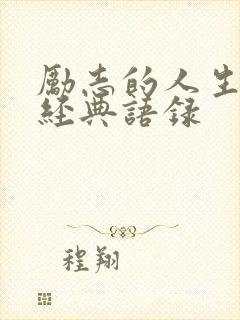 勵志的人生
經典語録
程翔